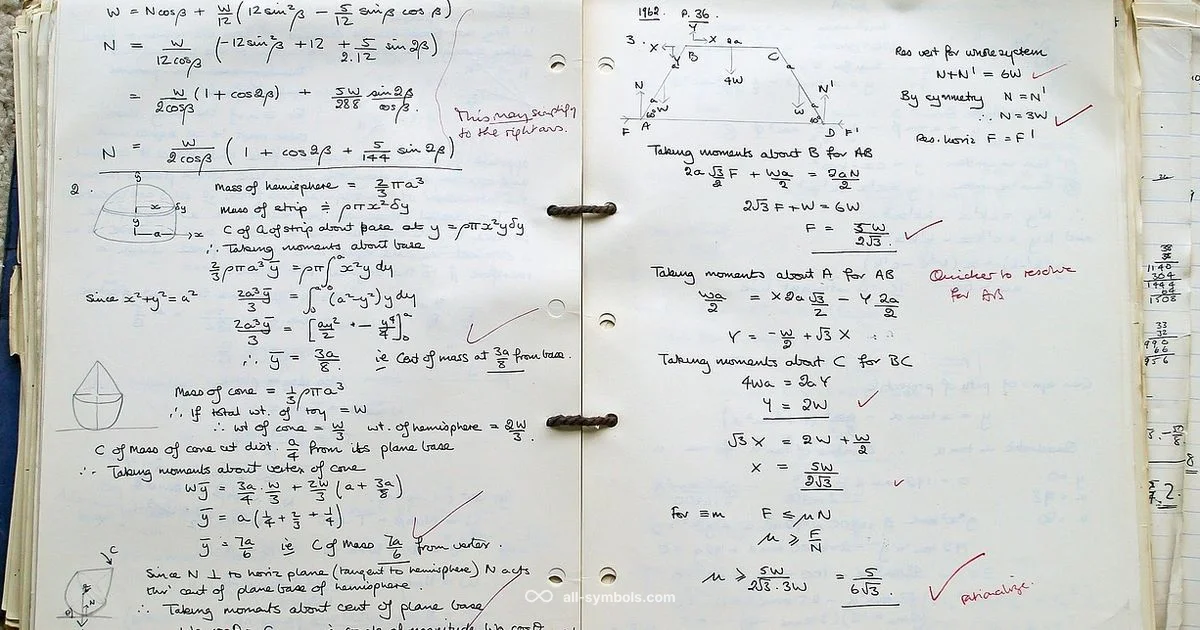 W = Ncosβ + W/12 (12sin²β − 5/12 sinβ cosβ)
N = W/12cosβ (−12sin²β + 12 + 5/2.12 sin2β)
= W/2cosβ (1 + cos2β) + 5W/288 sin2β/cosβ.
This may simplify
to the right ans.
N = W/2cosβ (1 + cos2β + 5/144 sin2β)
2.
Mass of hemisphere = 2/3 πa³
Mass of strip ≑ ρπx²δy
C of G of strip about base at y = ρπx²yδy
∴ Taking moments about base
2/3 ρπa³ȳ = ρπ∫₀ᵃ x²y dy
Since x²+y² = a² 2a³ȳ/3 = ∫₀ᵃ (a²−y²)y dy
2a³ȳ/3 = [ay²/2 + − y⁴/4]₀ᵃ
∴ ȳ = 3a/8. ie Cent of mass at 3a/8 from base.
Mass of cone = 1/3 ρπa³
∴ If total wt. of toy = W
∴ wt of cone = W/3 wt. of hemisphere = 2W/3.
C of Mass of cone at dist. a/4 from its plane base
∴ Taking moments about vertex of cone
Wȳ = 3a/4 . W/3 + 2W/3 (a + 3a/8)
ȳ = a(1/4 + 2/3 + 1/4)
ȳ = 7a/6 ie C of Mass 7a/6 from vertex.
Since N ⊥ to horiz plane (tangent to hemisphere) N acts
thro' cent of plane base of hemisphere.
∴ Taking moments about cent of plane base
1962. P.36.
3.
Y
X X 2a
B C
a 4W a
N N'
a W W a
60° 60°
F A D F'
Res vert for whole system
N+N' = 6W
By symmetry N = N'
∴ N = 3W
Res. horiz F = F'
Taking moments about B for AB
2a √3/2 F + Wa/2 = 2aN/2
2√3 F + W = 6W
F = 5W/2√3
Taking moments about A for AB
Quicker to resolve
for AB
Wa/2 = X 2a √3/2 − Y 2a/2
Y = −W/2 + √3 X
Taking moments about C for BC
4Wa = 2aY
Y = 2W
√3 X = 2W + W/2
X = 5W/2√3
For ≡m F ≤ μN
μ ≥ F/N
μ ≥ 5W/2√3.3W = 5/6√3.
rationalize.
38
38
1140
304
1444
64
1508
33
32
990
66
956
all-symbols.com